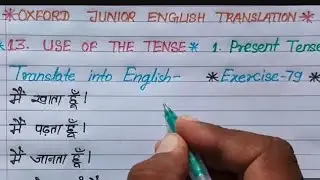 *OXFORD JUNIOR ENGLISH TRANSLATION*
*13. USE OF THE TENSE* 1. Present Tense
Translate into English- *Exercise-79*
मैं खाता हूँ।
मैं पढ़ता हूँ।
मैं जानता हूँ।